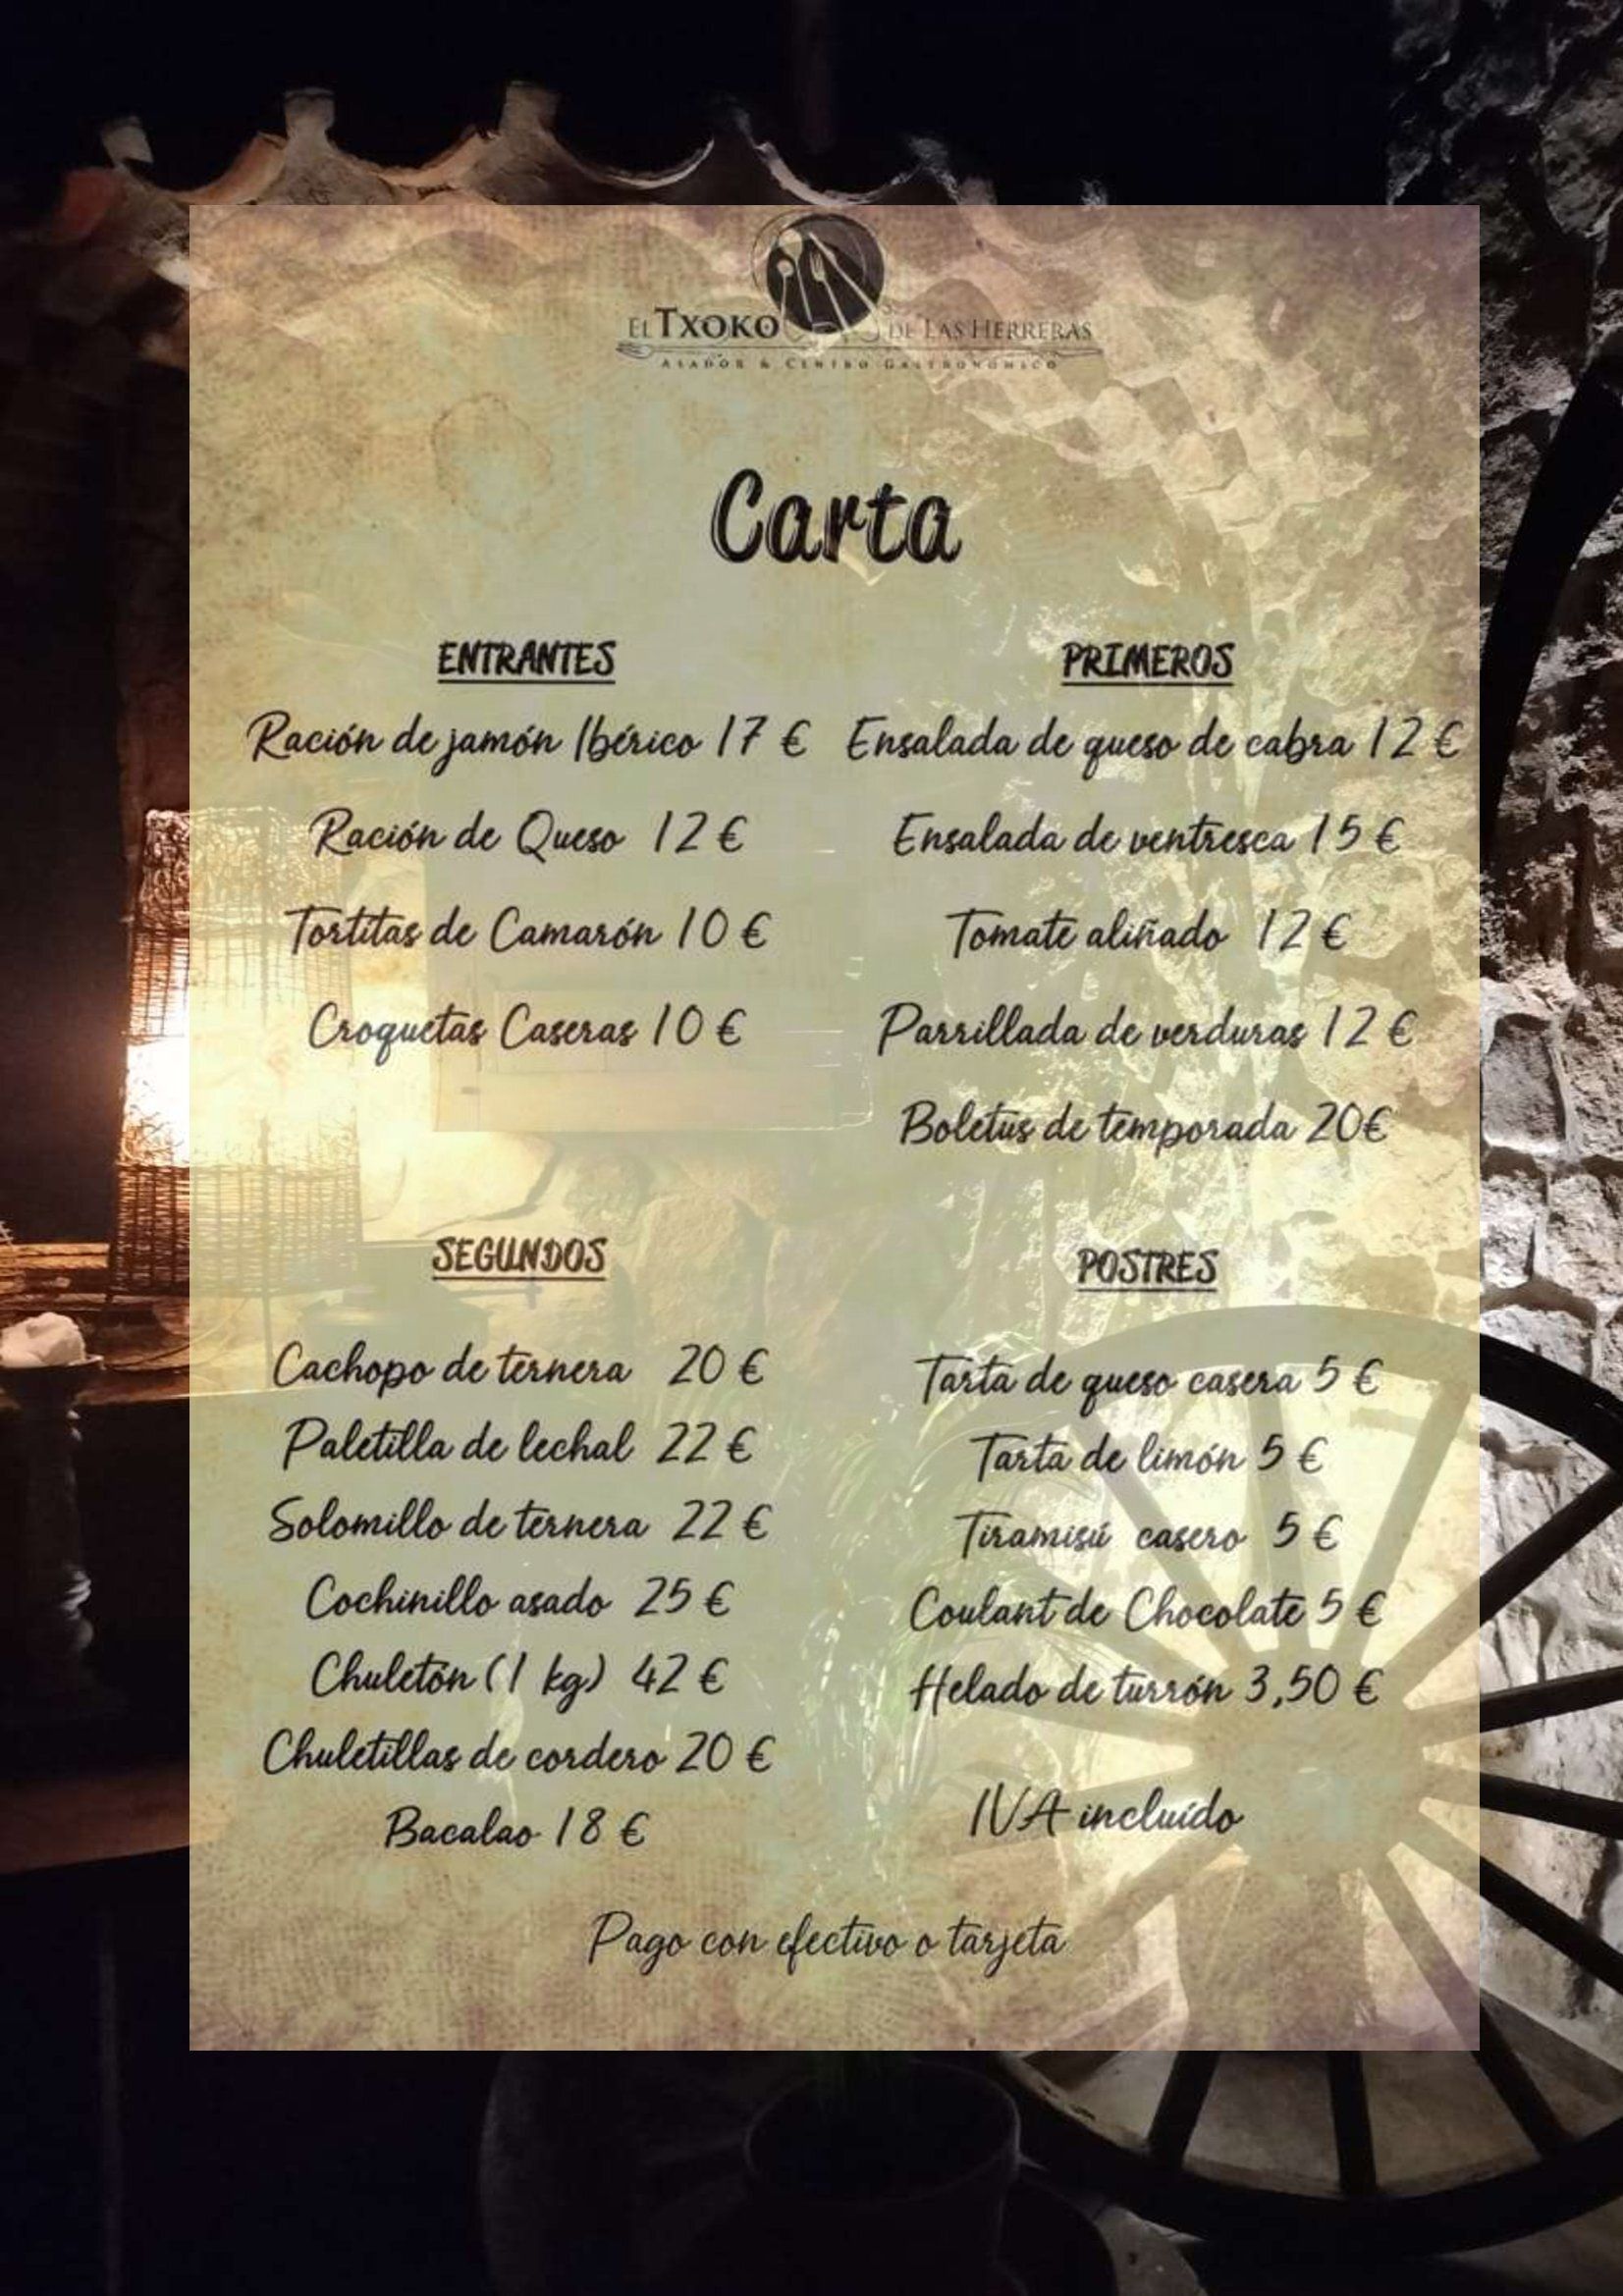 EL TXOKO DE LAS HERRERAS
ASADOR & CENTRO GASTRONÓMICO
Carta
ENTRANTES
Ración de jamón Ibérico 17 €
Ración de Queso 12 €
Tortitas de Camarón 10 €
Croquetas Caseras 10 €
PRIMEROS
Ensalada de queso de cabra 12 €
Ensalada de ventresca 15 €
Tomate aliñado 12 €
Parrillada de verduras 12 €
Boletus de temporada 20€
SEGUNDOS
Cachopo de ternera 20 €
Paletilla de lechal 22 €
Solomillo de ternera 22 €
Cochinillo asado 25 €
Chuletón (1 kg) 42 €
Chuletillas de cordero 20 €
Bacalao 18 €
POSTRES
Tarta de queso casera 5 €
Tarta de limón 5 €
Tiramisú casero 5 €
Coulant de Chocolate 5 €
Helado de turrón 3,50 €
IVA incluído
Pago con efectivo o tarjeta